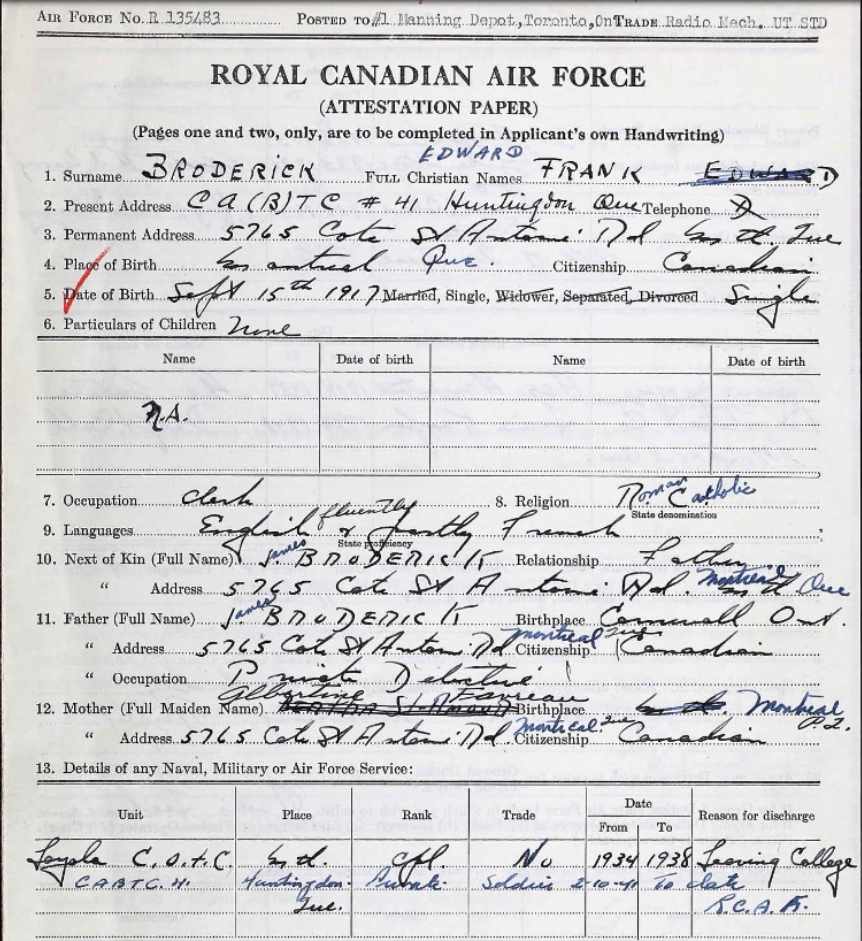 AIR FORCE NO. R 135483 POSTED TO #1 Manning Depot, Toronto, On TRADE Radio Mech. UT STD
ROYAL CANADIAN AIR FORCE
(ATTESTATION PAPER)
(Pages one and two, only, are to be completed in Applicant's own Handwriting)
EDWARD
1. Surname BRODERICK FULL Christian Names FRANK EDWARD
2. Present Address C A (B) T C # 41 Huntingdon Que Telephone X
3. Permanent Address 5765 Cote St Antoine Rd Mtl. Que
4. Place of Birth Montreal Que. Citizenship Canadian
5. Date of Birth Sept 15th 1917 Married, Single, Widower, Separated, Divorced Single
6. Particulars of Children None
Name Date of birth Name Date of birth
N.A.
7. Occupation Clerk 8. Religion Roman Catholic
State denomination
fluently
9. Languages English & partly French
State proficiency
10. Next of Kin (Full Name) James BRODERICK Relationship Father
" Address 5765 Cote St Antoine Rd. Montreal Que
11. Father (Full Name) James BRODERICK Birthplace Cornwall Ont.
" Address 5765 Cote St Antoine Rd Montreal Que Citizenship Canadian
" Occupation Private Detective
Albertine Favreau
12. Mother (Full Maiden Name) Birthplace Montreal P.Q.
" Address 5765 Cote St Antoine Rd. Montreal Que Citizenship Canadian
13. Details of any Naval, Military or Air Force Service:
Unit Place Rank Trade Date Reason for discharge
From To
Loyola C.O.T.C. Mtl. Cpl. No 1934 1938 Leaving College
C.A.B.T.C. 41. Huntingdon Private Soldier 2-10-41 To date
Que. R.C.A.F.